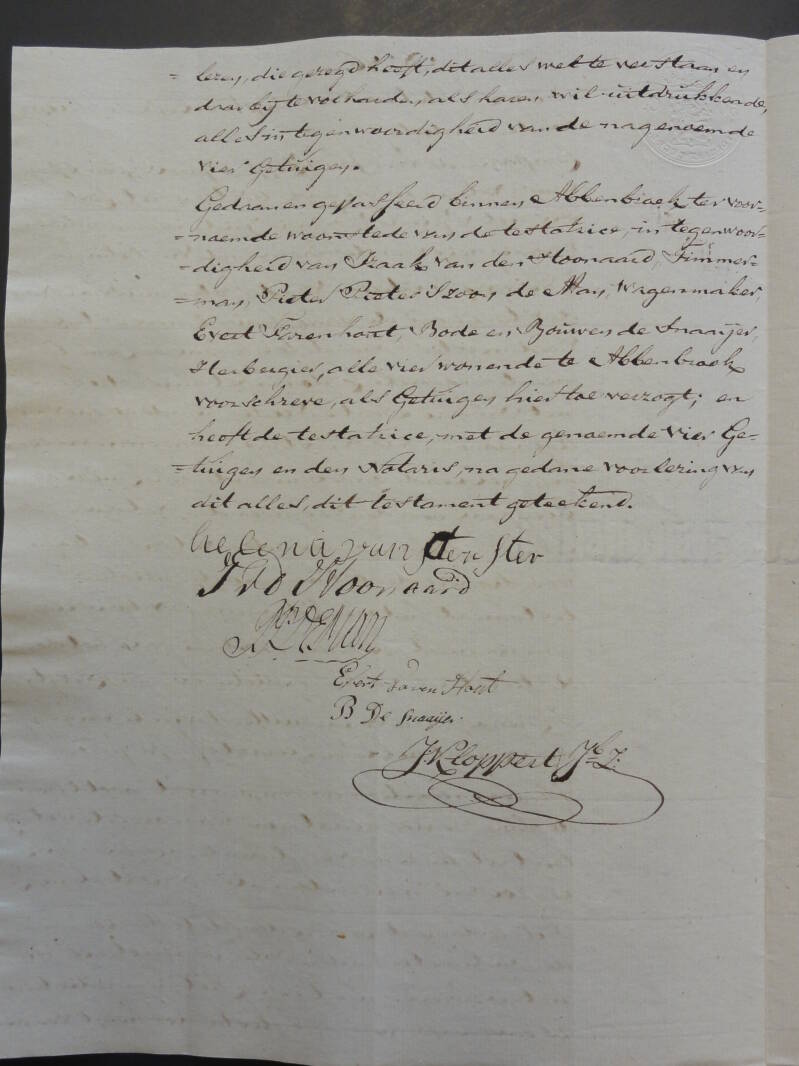 = lezen, die gezegd heeft, dit alles wel te verstaan en
daar bij te volharden, als haren wil uitdrukkende,
alles in tegenwoordigheid van de nagenoemde
vier Getuigen.
Gedaan en gepasseerd binnen Abbenbroek ter voor-
=noemde woonstede van de testatrice, in tegenwoor-
=digheid van Izaak van den Hoonaard, Timmer-
=man, Pieter Pieterszoon de Man, Wagenmaker,
Evert Farenhout, Bode en Bouwen de Snaaijer,
Herbergier, alle vier wonende te Abbenbroek
voorschreve, als Getuigen hiertoe verzogt; en
heeft de testatrice, met de genoemde vier Ge-
=tuigen en den Notaris, na gedane voorlezing van
dit alles, dit testament geteekend.
helena van der ster
I v d Hoonaard
P. De Man
Evert varen Hout
B De Snaaijer.
J. Kloppert Jz: